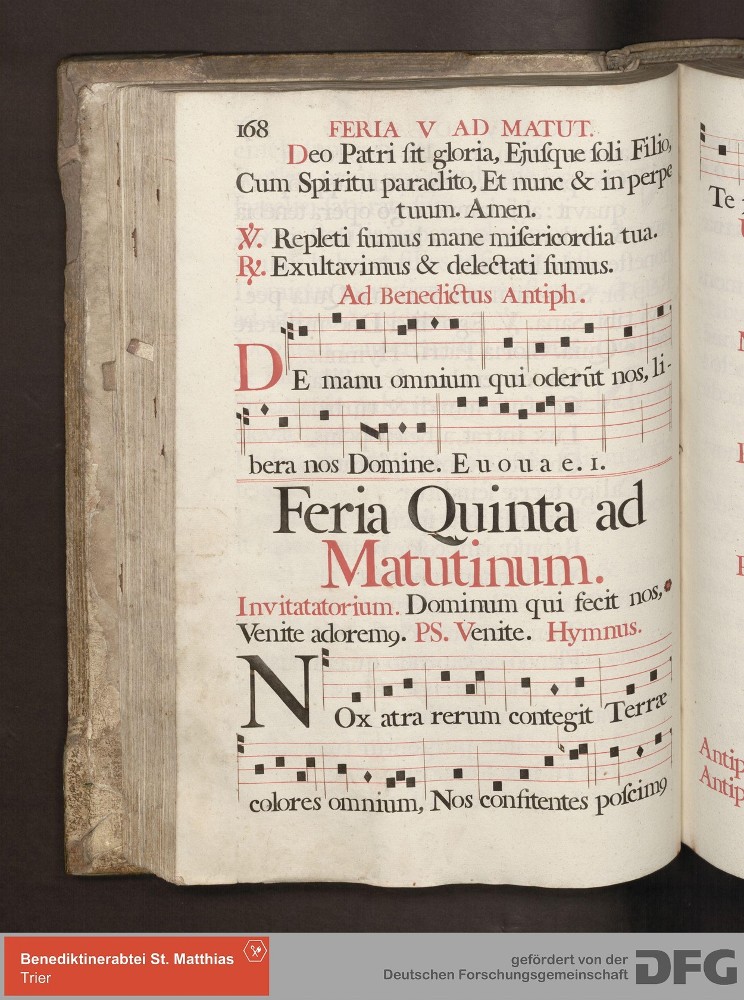 168 FERIA V AD MATUT.
Deo Patri ſit gloria, Ejuſque ſoli Filio,
Cum Spiritu paraclito, Et nunc & in perpe
tuum. Amen.
℣. Repleti ſumus mane miſericordia tua.
℟. Exultavimus & delectati ſumus.
Ad Benedictus Antiph.
DE manu omnium qui oderūt nos, li-
bera nos Domine. E u o u a e. 1.
Feria Quinta ad
Matutinum.
Invitatatorium. Dominum qui fecit nos,
Venite adorem9. PS. Venite. Hymnus.
NOx atra rerum contegit Terræ
colores omnium, Nos confitentes poſcim9
Te
Antip
Antip
Benediktinerabtei St. Matthias
Trier
gefördert von der
Deutschen Forschungsgemeinschaft
DFG